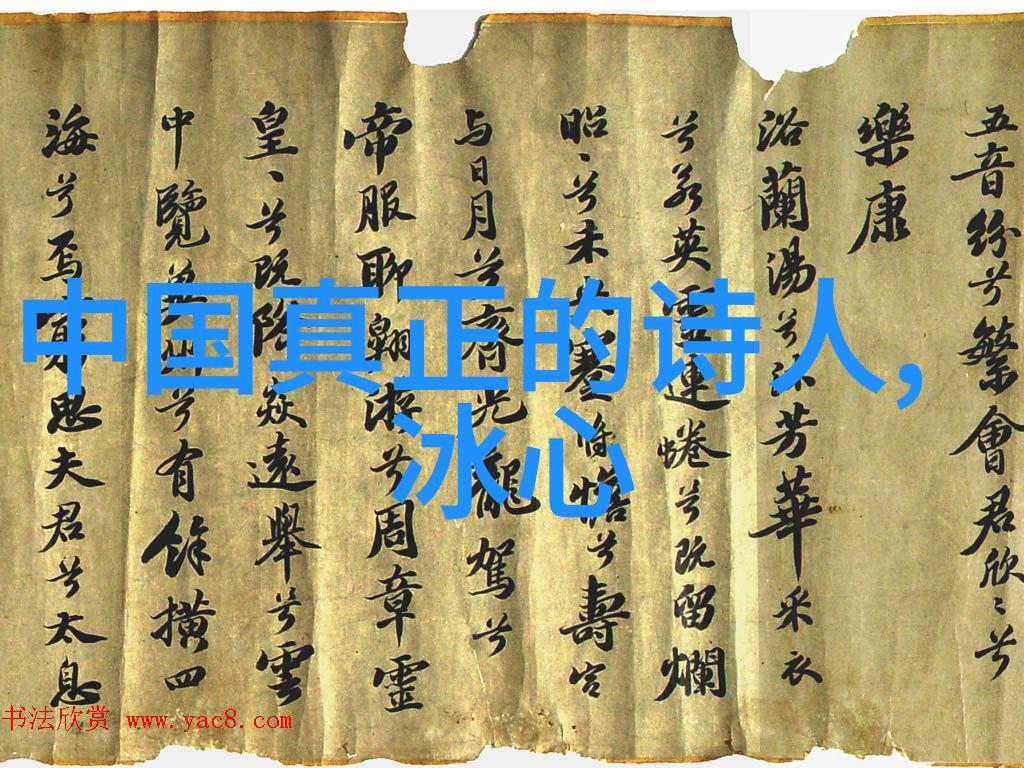 五音纷兮繁會君欣〻兮
樂康
浴蘭湯兮沐芳華采衣
兮若英靈連蜷兮既留爛
昭〻兮未央蹇将憺兮壽宫
与日月兮齊光龍駕兮
帝服聊翱游兮周章靈
皇〻兮既降猋遠舉兮雲
中覽兮有餘横四
海兮焉窮思夫君兮太息
中国真正的诗人,
冰心
书法欣赏 www.yac8.com